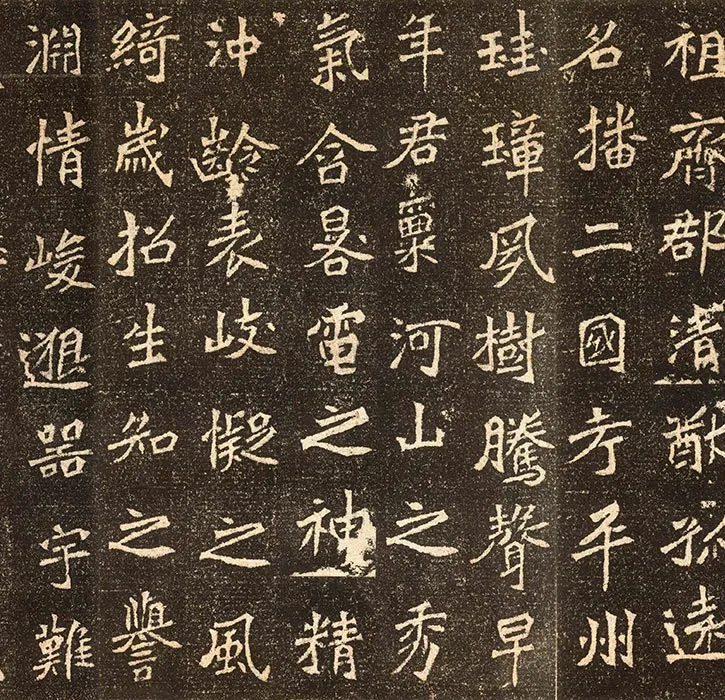 祖齊郡清猷孤遠
名播二國考平州
珪璋夙樹騰聲早
年君稟河山之秀
氣含晷電之神精
沖齡表岐懝之風
綺歲招生知之譽
淵情峻邈器宇難